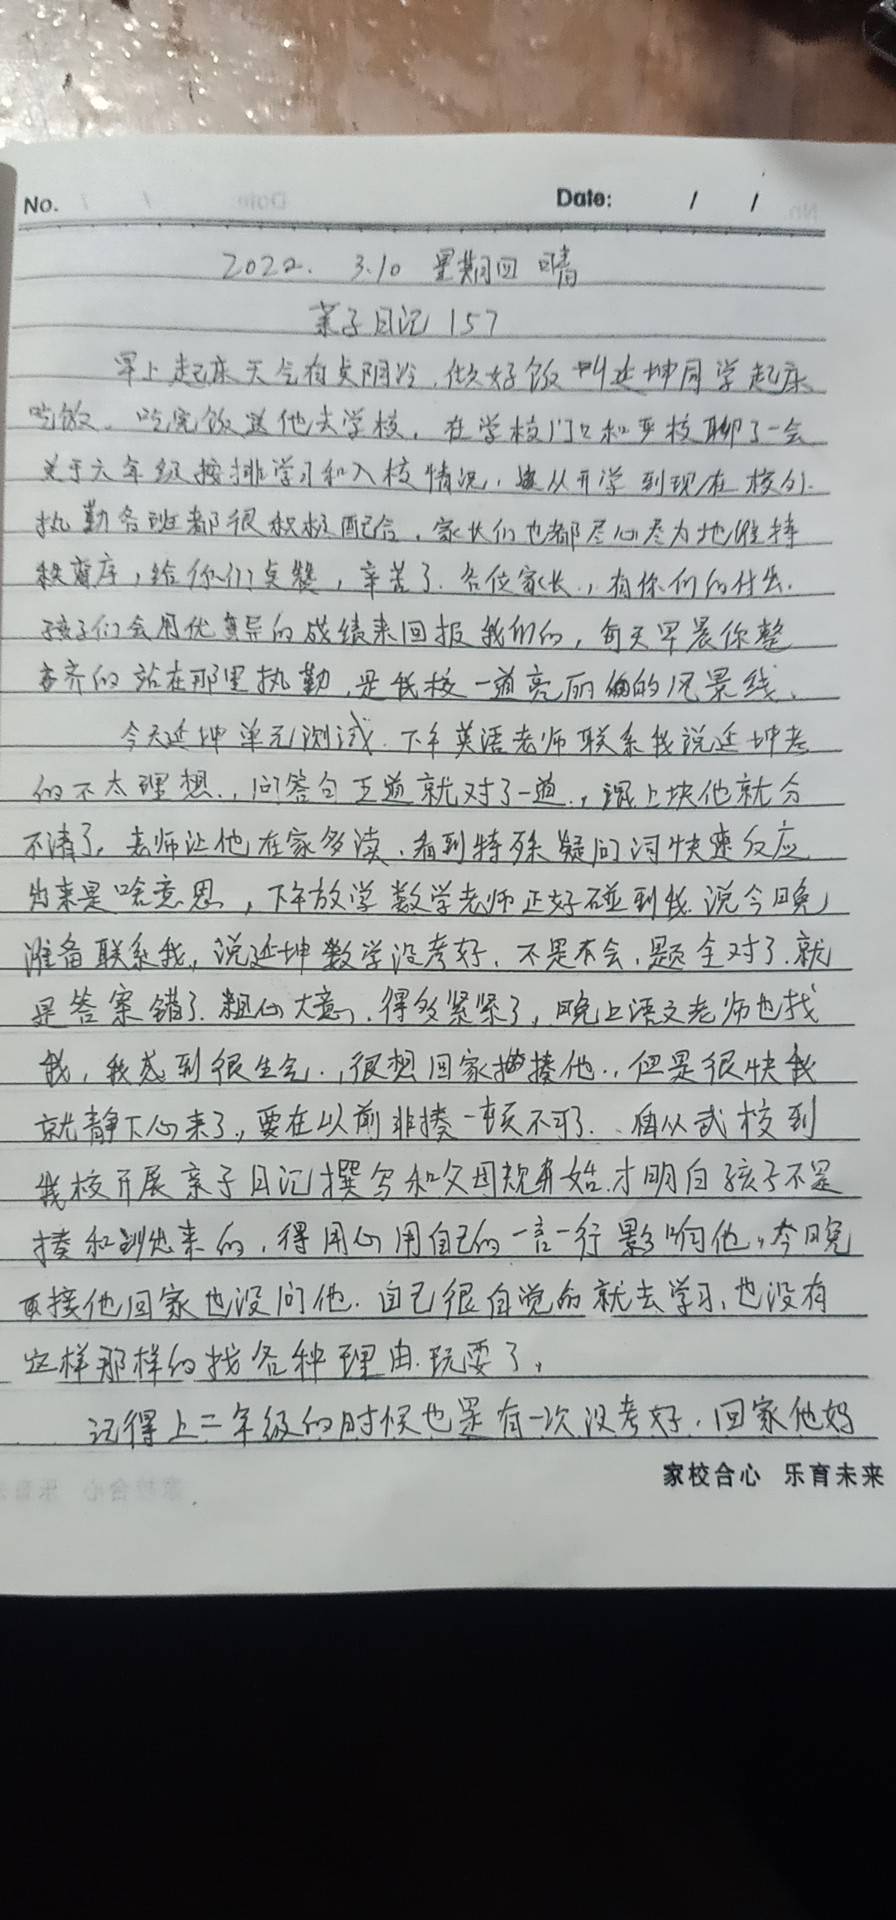 No. Date: / /
2022. 3.10 星期四 晴
亲子日记 157
早上起床天气有点阴冷,做好饭叫延坤同学起床
吃饭。吃完饭送他去学校,在学校门口和严校聊了一会
关于六年级按排学习和入校情况,从开学到现在校外
执勤各班都很积极配合,家长们也都尽心尽力地维持
秩序,给你们点赞,辛苦了.各位家长.,有你们的付出.
孩子们会用优异的成绩来回报我们的,每天早晨你整
齐的站在那里执勤,是我校一道亮丽的风景线、
今天延坤单元测试.下午英语老师联系我说延坤考
的不太理想.,问答句五道就对了一道.,混上块他就分
不清了。老师让他在家多读.看到特殊疑问词快速反应
出来是啥意思,下午放学数学老师正好碰到我.说今晚
准备联系我,说延坤数学没考好.不是不会,题全对了.就
是答案错了.粗心大意.得多紧紧了,晚上语文老师也找
我,我感到很生气.,很想回家揍他.,但是很快我
就静下心来了,要在以前非揍一顿不可了.自从武校到
我校开展亲子日记撰写和父母规开始.才明白孩子不是
揍和训出来的,得用心用自己的一言一行影响他,今晚
接他回家也没问他.自己很自觉的就去学习,也没有
这样那样的找各种理由.玩耍了,
记得上二年级的时候也是有一次没考好.回家他妈
家校合心 乐育未来